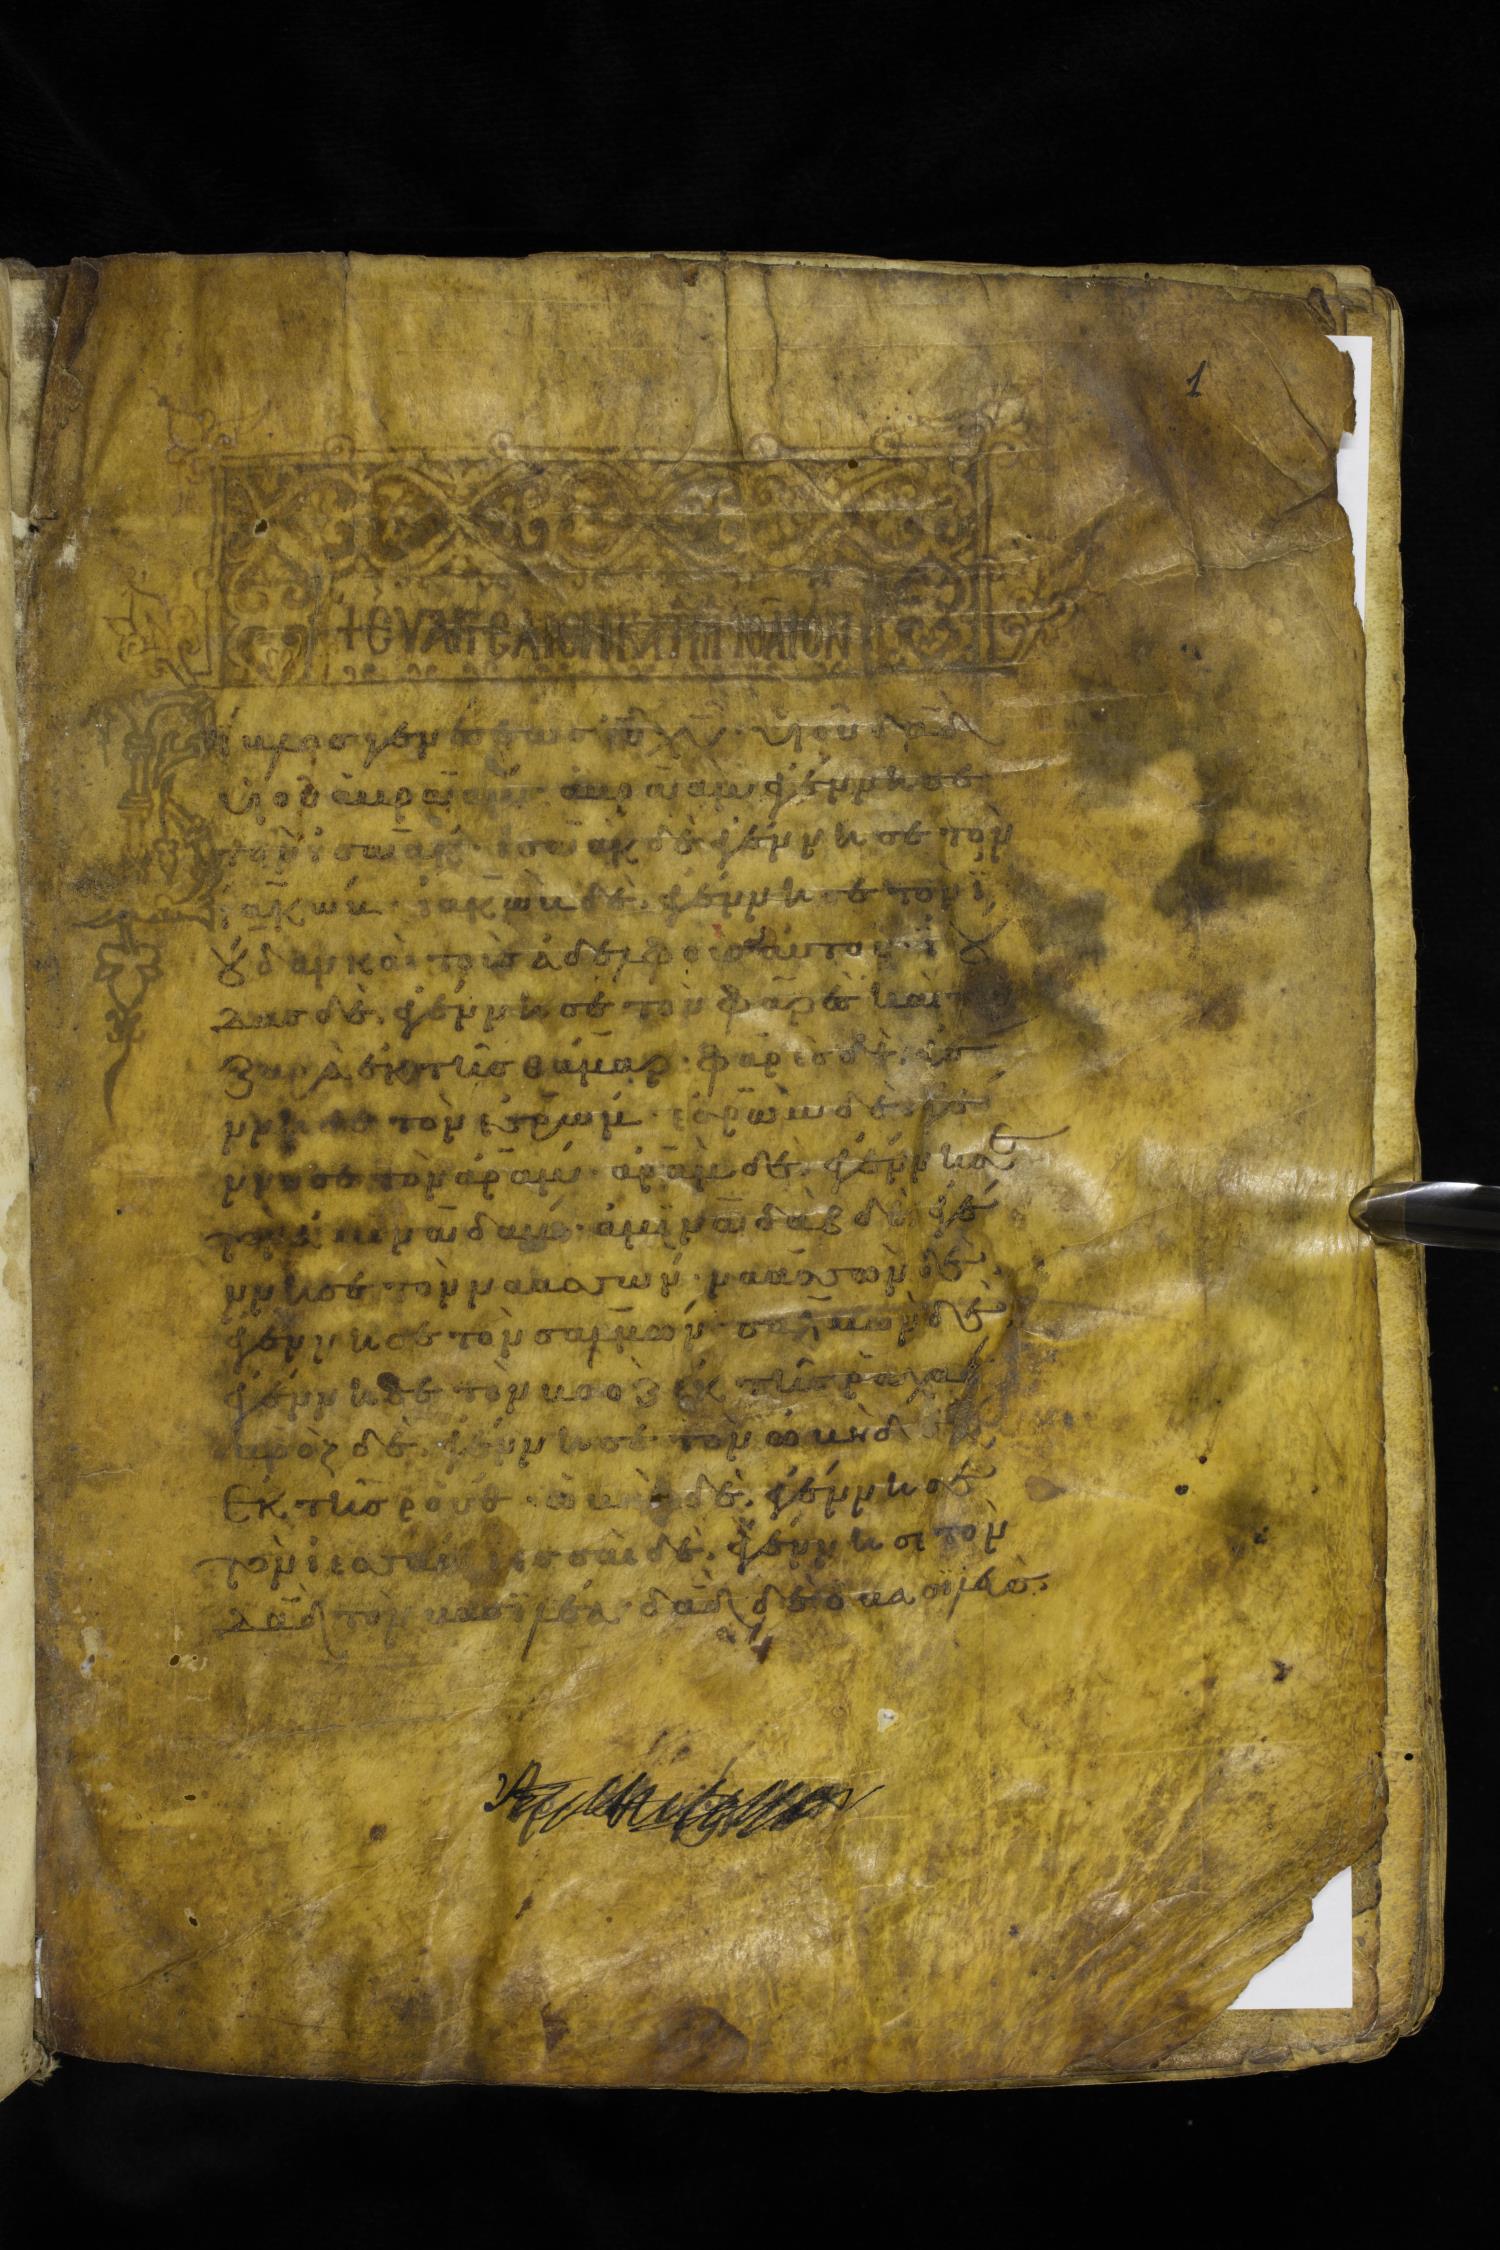 1
+ ΕΥΑΓΓΕΛΙΟΝ ΚΑΤΑ
βίβλος γενέσεως ἰῦ χῦ· υἱοῦ δᾱδ
υἱοῦ ἀβραάμ· ἀβραὰμ ἐγέννησε
τὸν ἰσαάκ· ἰσαὰκ δὲ ἐγέννησε τὸν
ἰακώβ· ἰακὼβ δὲ ἐγέννησε τὸν ϊ
ούδαν καὶ τοὺς ἀδελφοὺς αὐτοῦ· ϊού
δας δὲ ἐγέννησε τὸν φαρὲς καὶ τὸν
ζαρὰ ἐκ τῆς θάμαρ· φαρὲς δὲ ἐγέ
ννησε τὸν ἐσρώμ· ἐσρὼμ δὲ ἐγέ
ννησε τὸν ἀράμ· ἀρὰμ δὲ ἐγέννησε
τὸν ἀμιναδάμ· ἀμιναδὰβ δὲ ἐγέ
ννησε τὸν ναασσών· ναασσὼν δὲ
ἐγέννησε τὸν σαλμών· σαλμὼν δὲ
ἐγέννησε τὸν βοὸζ ἐκ τῆς ῥαχάβ
βοὸζ δὲ ἐγέννησε τὸν ὠβὴδ
ἐκ τῆς ῥούθ· ὠβὴδ δὲ ἐγέννησε
τὸν ἰεσσαί· ἰεσσαὶ δὲ ἐγέννησε τὸν
δᾱδ τὸν βασιλέα· δᾱδ δὲ ὁ βασιλεὺς